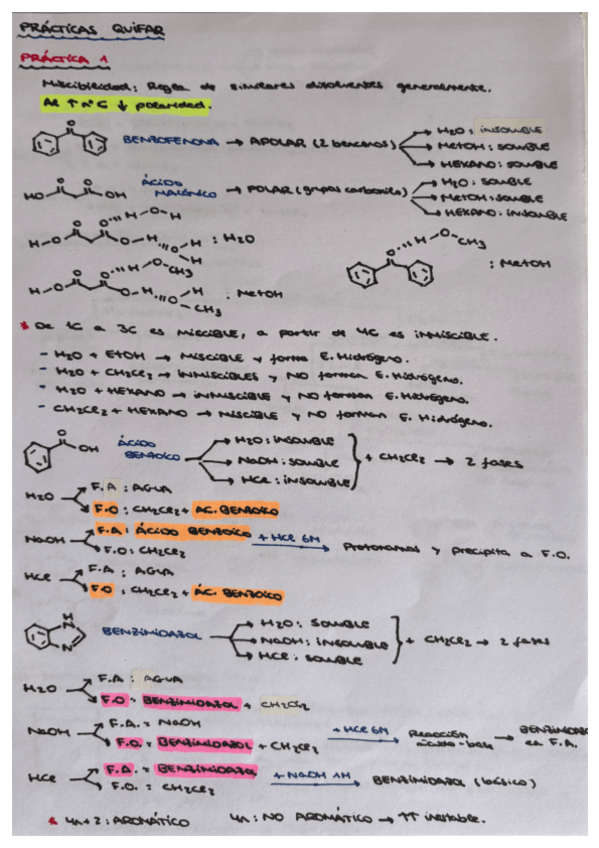 PRÁCTICAS QUIFAR
PRÁCTICA 1
Miscibilidad: Regla de similares disolventes generalmente.
Al ↑ nº C ↓ polaridad.
BENZOFENONA → APOLAR (2 bencenos)
H2O: INSOLUBLE
MetOH: SOLUBLE
HEXANO: SOLUBLE
ÁCIDO MALÓNICO → POLAR (grupos carbonilos)
H2O: SOLUBLE
MetOH: SOLUBLE
HEXANO: INSOLUBLE
: H2O
: MetOH
: MetOH
* De 1C a 3C es MISCIBLE, a partir de 4C es INMISCIBLE.
- H2O + EtOH → MISCIBLE y forma E. Hidrógeno.
- H2O + CH2Cl2 → INMISCIBLES y NO forman E. Hidrógeno.
- H2O + HEXANO → INMISCIBLE y NO forman E. Hidrógeno.
- CH2Cl2 + HEXANO → MISCIBLE y NO forman E. Hidrógeno.
ÁCIDO BENZOICO
H2O: INSOLUBLE
NaOH: SOLUBLE
HCl: INSOLUBLE
+ CH2Cl2 → 2 fases
H2O
F.A: AGUA
F.O: CH2Cl2 + AC. BENZOICO
NaOH
F.A: ÁCIDO BENZOICO + HCl 6M → Protonamos y precipita a F.O.
F.O: CH2Cl2
HCl
F.A: AGUA
F.O: CH2Cl2 + ÁC. BENZOICO
BENZIMIDAZOL
H2O: SOLUBLE
NaOH: INSOLUBLE
HCl: SOLUBLE
+ CH2Cl2 → 2 fases
H2O
F.A: AGUA
F.O = BENZIMIDAZOL + CH2Cl2
NaOH
F.A. = NaOH
F.O. = BENZIMIDAZOL + CH2Cl2
+ HCl 6M → Reacción ácido-base → BENZIMIDAZ en F.A.
HCl
F.A. = BENZIMIDAZOL + NaOH 1M → BENZIMIDAZOL (básico)
F.O. = CH2Cl2
* 4n+2: AROMÁTICO 4n: NO AROMÁTICO → ↑↑ inestable.